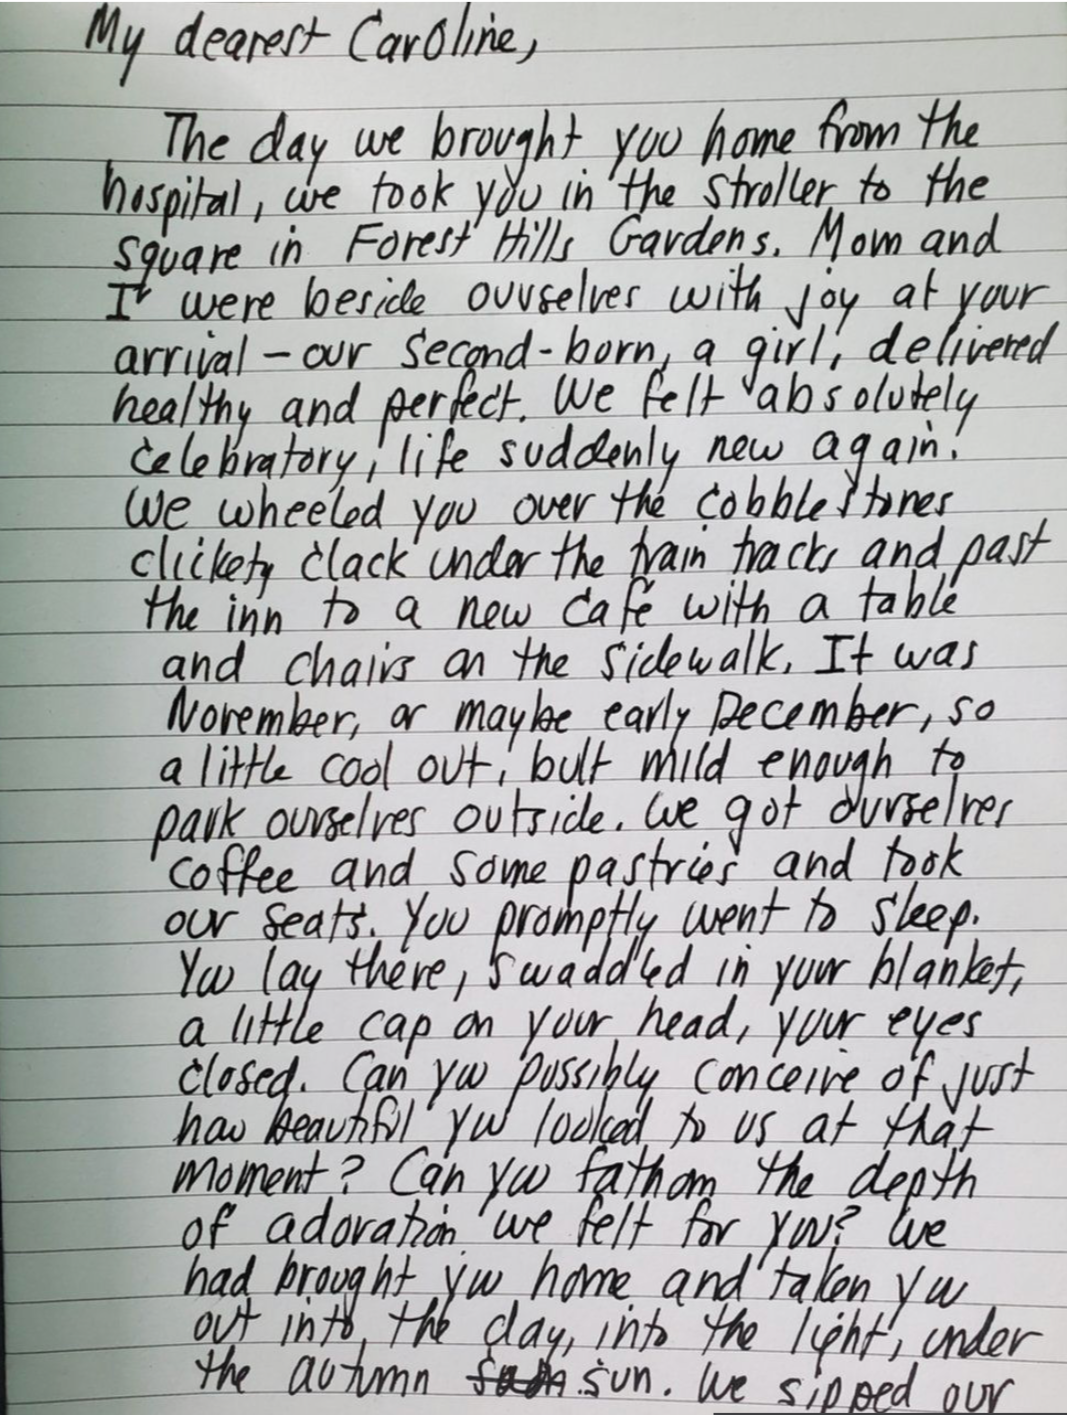 My dearest Caroline,
The day we brought you home from the
hospital, we took you in the stroller to the
square in Forest Hills Gardens. Mom and
I were beside ourselves with joy at your
arrival – our second-born, a girl, delivered
healthy and perfect. We felt absolutely
celebratory, life suddenly new again.
We wheeled you over the cobblestones
clickety clack under the train tracks and past
the inn to a new café with a table
and chairs on the sidewalk. It was
November, or maybe early December, so
a little cool out, but mild enough to
park ourselves outside. We got ourselves
coffee and some pastries and took
our seats. You promptly went to sleep.
You lay there, swaddled in your blanket,
a little cap on your head, your eyes
closed. Can you possibly conceive of just
how beautiful you looked to us at that
moment? Can you fathom the depth
of adoration we felt for you? We
had brought you home and taken you
out into the day, into the light, under
the autumn sun. We sipped our